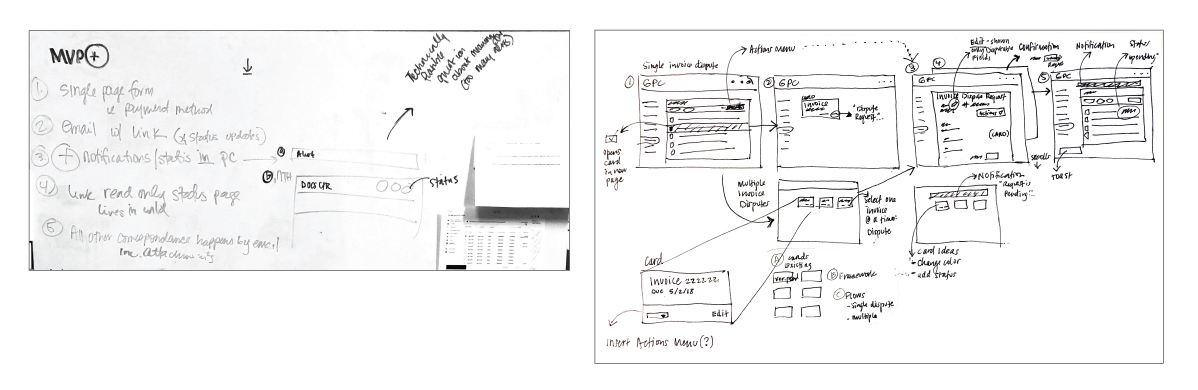 MVP+
1 Single page form
ie payment method
2 email w/ link (& status updates)
3 + Notifications/status in PC
4 Link read only status page
lives in wild
5 All other correspondance happens by email
inc. attachments
a Alert
b
DOCS CTR
status
Technically
Feasible
question
about
(too many
Single invoice dispute
Actions Menu
1
GPC
opens
card
in new
page
2
GPC
Invoice
"Dispute
Request"...
Edit - shown
only
Fields
Confirmation
3
4
GPC
Invoice Dispute Request
Actions
(CARD)
Notification
Status
"pending"
5
GPC
TOAST
Multiple
Invoice
Disputes
Select one
invoice
@ a time:
Dispute
Notification
"Request is
Pending"...
card ideas
- change color
- add status
Card
Invoice 222222
Due 5/2/18
Edit
Insert Actions Menu (?)
A cards
existing
B Framework
C Flows
- single dispute
- multiple